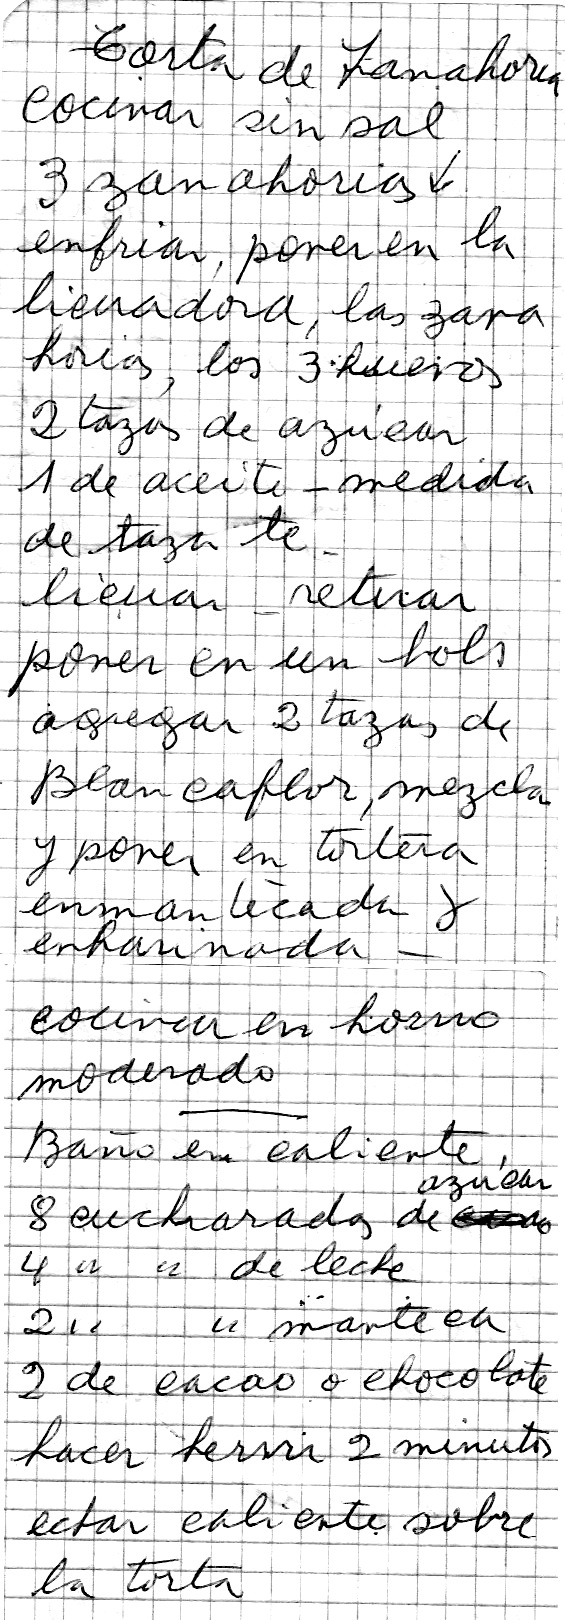 Torta de Zanahoria
cocinar sin sal
3 zanahorias ↓
enfriar, poner en la
licuadora, las zana
horias, los 3 huevos
2 tazas de azúcar
1 de aceite - medida
de taza te -
licuar - retirar
poner en un bols
agregar 2 tazas de
Blancaflor, mezcla
y poner en tortera
enmantecada y
enharinada -
cocinar en horno
moderado
Baño en caliente,
azúcar
8 cucharadas de
4 " " de leche
2 " " manteca
2 de cacao o chocolate
hacer hervir 2 minutos
echar caliente sobre
la torta